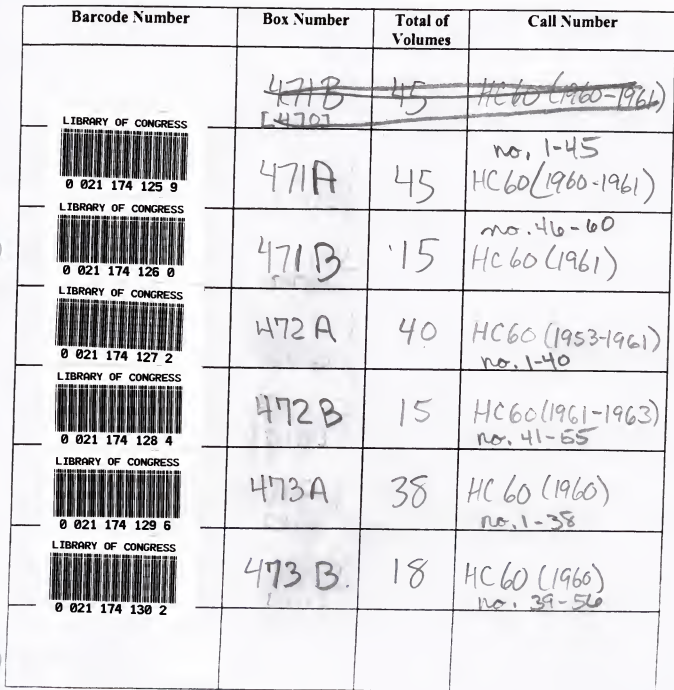 Barcode Number Box Number Total of Volumes Call Number
471B 45 HC60 (1960-1961)
[470]
LIBRARY OF CONGRESS
0 021 174 125 9
471A 45 no. 1-45
HC60 (1960-1961)
LIBRARY OF CONGRESS
0 021 174 126 0
471B 15 no. 46-60
HC60 (1961)
LIBRARY OF CONGRESS
0 021 174 127 2
472A 40 HC60 (1953-1961)
no. 1-40
LIBRARY OF CONGRESS
0 021 174 128 4
472B 15 HC60 (1961-1963)
no. 41-55
LIBRARY OF CONGRESS
0 021 174 129 6
473A 38 HC60 (1960)
no. 1-38
LIBRARY OF CONGRESS
0 021 174 130 2
473B. 18 HC60 (1960)
no. 39-56